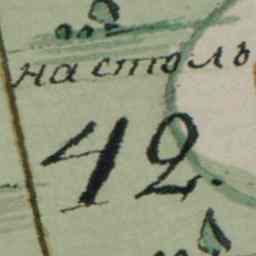 настолъ
42.